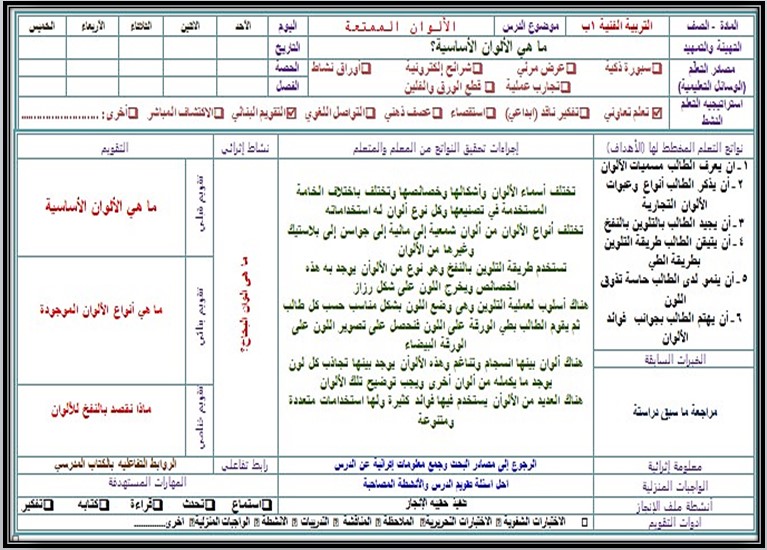 المادة - الصف التربية الفنية ١ب موضوع الدرس الألوان الممتعة اليوم الأحد الاثنين الثلاثاء الأربعاء الخميس
التهيئة والتمهيد ما هي الألوان الأساسية؟ التاريخ
مصادر التعلم (الوسائل التعليمية) سبورة ذكية عرض مرئي شرائح إلكترونية أوراق نشاط الحصة
تجارب عملية قطع الورق والفلين الفصل
استراتيجيه التعلم النشط تعلم تعاوني تفكير ناقد (ابداعي) استقصاء عصف ذهني التواصل اللغوي التقويم البنائي الاكتشاف المباشر أخرى: ..........................
نواتج التعلم المخطط لها (الأهداف) إجراءات تحقيق النواتج من المعلم والمتعلم نشاط إثرائي التقويم
١- ان يعرف الطالب مسميات الألوان
٢- أن يذكر الطالب أنواع وعبوات
الألوان التجارية
٣- أن يجيد الطالب بالتلوين بالنفخ
٤- أن يتيقن الطالب طريقة التلوين
بطريقة الطي
٥- أن ينمو لدى الطالب حاسة تذوق
اللون
٦- أن يهتم الطالب بجوانب فوائد
الألوان
الخبرات السابقة
مراجعة ما سبق دراستة
تختلف أسماء الألوان وأشكالها وخصائصها وتختلف باختلاف الخامة
المستخدمة في تصنيعها وكل نوع ألوان له استخداماته
تختلف أنواع الألوان من ألوان شمعية إلى مائية إلى جواسن إلى بلاستيك
وغيرها من الألوان
تستخدم طريقة التلوين بالنفخ وهو نوع من الألوأن يوجد به هذه
الخصائص ويخرج اللون على شكل رزاز
هناك أسلوب لعملية التلوين وهى وضع اللون بشكل مناسب حسب كل طالب
ثم يقوم الطالب بطي الورقة على اللون فنحصل على تصوير اللون على
الورقة البيضاء
هناك ألوان بينها انسجام وتناغم وهذه الألوأن يوجد بينها تجاذب كل لون
يوجد ما يكمله من ألوان أخرى ويجب توضيح تلك الألوان
هناك العديد من الألوأن يستخدم فيها فوائد كثيرة ولها استخدامات متعددة
ومتنوعة
ما هي ألوان البخاخ؟
تقويم قبلي
ما هي الألوان الأساسية
تقويم بنائي
ما هي أنواع الألوان الموجودة
تقويم ختامي
ماذا نقصد بالنفخ للألوان
معلومة إثرائية الرجوع إلى مصادر البحث وجمع معلومات إثرائية عن الدرس رابط تفاعلي الروابط التفاعليه بالكتاب المدرسي
الواجبات المنزلية احل اسئلة تقويم الدرس والأنشطة المصاحبة المهارات المستهدفة
أنشطة ملف الإنجاز تنفيذ حقيبه الإنجاز استماع تحدث قراءة كتابه تفكير
أدوات التقويم الاختبارات الشفوية الاختبارات التحريرية الملاحظة المناقشة التدريبات الأنشطة الواجبات المنزلية اخرى..............